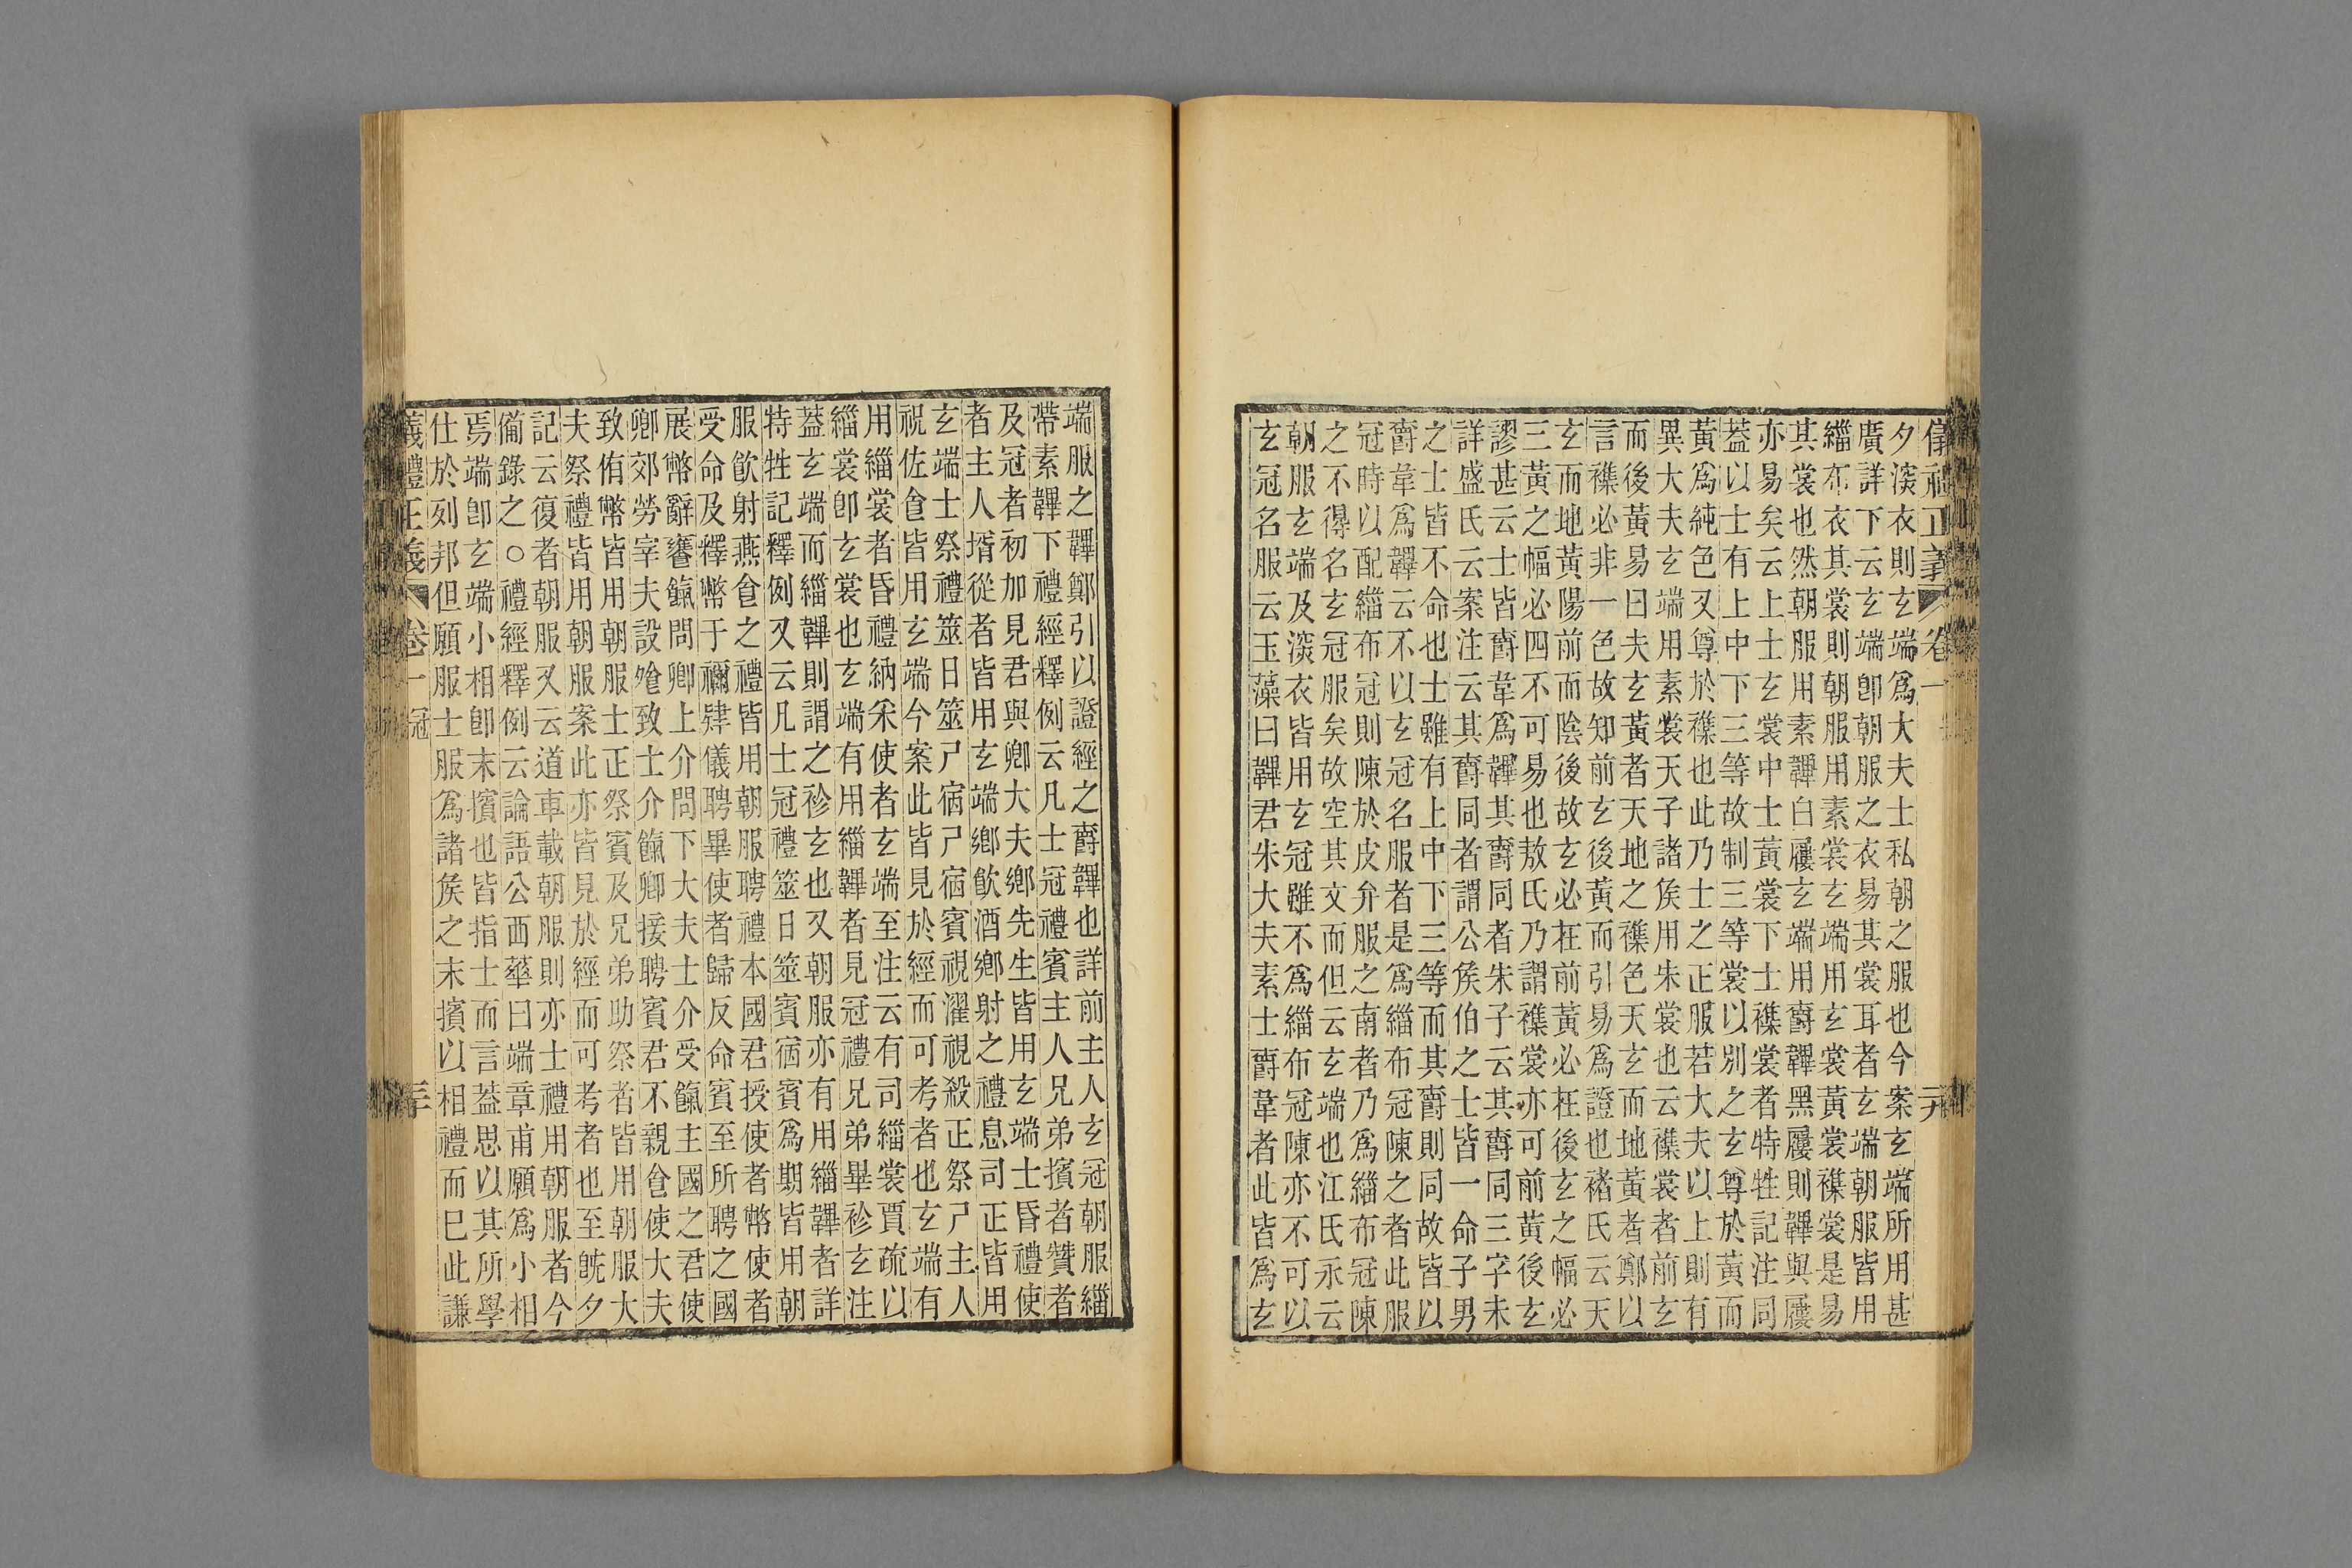 儀禮正義 卷一 元
夕深衣則玄端爲大夫士私朝之服也今案玄端所用甚
廣詳下云玄端卽朝服之衣易其裳耳者玄端朝服皆用
緇布衣其裳則朝服用素裳玄端用玄裳黃裳襍裳是易
其裳也然朝服用素韠白屨玄端用爵韠黑屨則韠與屨
亦易矣云上士玄裳中士黃裳下士襍裳者特牲記注同
葢以士有上中下三等故制三等裳以別之玄尊於黃而
黃爲純色又尊於襍也此乃士之正服若大夫以上則有
異大夫玄端用素裳天子諸矦用朱裳也云襍裳者前玄
而後黃易曰夫玄黃者天地之襍色天玄而地黃者鄭以
言襍必非一色故知前玄後黃而引易爲證也褚氏云天
玄而地黃陽前而陰後故玄必在前黃必在後玄之幅必
三黃之幅必四不可易也敖氏乃謂襍裳亦可前黃後玄
謬甚云士皆爵韋爲韠其爵同者朱子云其爵同三字未
詳盛氏云案注云其爵同者謂公矦伯之士皆一命子男
之士皆不命也士雖有上中下三等而其爵則同故皆以
爵韋爲韠云不以玄冠名服者是爲緇布冠陳之者此服
冠時以配緇布冠則陳於皮弁服之南者乃爲緇布冠陳
之不得名玄冠服矣故空其文而但云玄端也江氏永云
朝服玄端及深衣皆用玄冠雖不爲緇布冠陳亦不可以
玄冠名服云玉藻曰韠君朱大夫素士爵韋者此皆爲玄
端服之韠鄭引以證經之爵韠也詳前主人玄冠朝服緇
帶素韠下禮經釋例云凡士冠禮賓主人兄弟擯者贊者
及冠者初加見君與卿大夫鄉先生皆用玄端士昏禮使
者主人壻從者皆用玄端鄉飮酒鄉射之禮息司正皆用
玄端士祭禮筮日筮尸宿尸宿賓視濯視殺正祭尸主人
祝佐食皆用玄端今案此皆見於經而可考者也玄端有
用緇裳者昏禮納采使者玄端至注云有司緇裳賈疏以
緇裳卽玄裳也玄端有用緇韠者見冠禮兄弟畢袗玄注
葢玄端而緇韠則謂之袗玄也又朝服亦有用緇韠者詳
特牲記釋例又云凡士冠禮筮日筮賓宿賓爲期皆用朝
服飮射燕食之禮皆用朝服聘禮本國君授使者幣使者
受命及釋幣于禰肄儀聘畢使者歸反命賓至所聘之國
展幣辭饔餼問卿上介問下大夫士介受餼主國之君使
卿郊勞宰夫設飱致士介餼卿接聘賓君不親食使大夫
致侑幣皆用朝服士正祭賓及兄弟助祭者皆用朝服大
夫祭禮皆用朝服案此亦皆見於經而可考者也至旣夕
記云復者朝服又云道車載朝服則亦士禮用朝服者今
備錄之○禮經釋例云論語公西華曰端章甫願爲小相
焉端卽玄端小相卽末擯也皆指士而言葢思以其所學
仕於列邦但願服士服爲諸矦之末擯以相禮而已此謙
義禮正義 卷一 冠 三